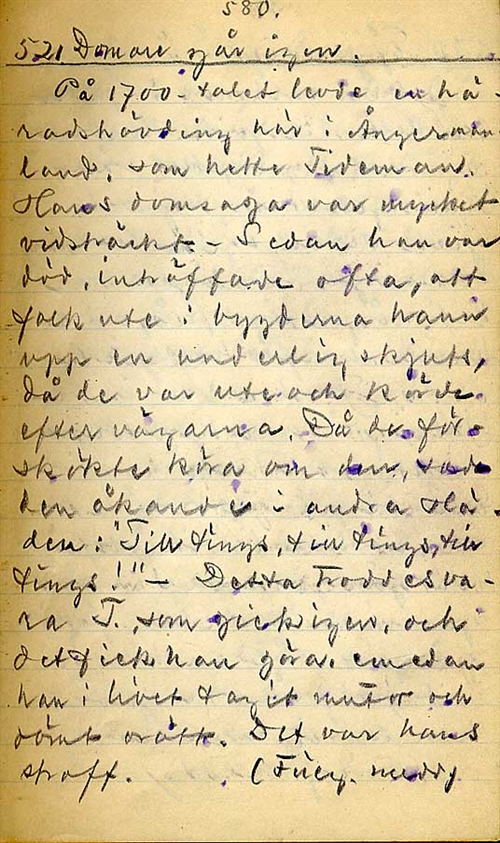 580.
521 Domare går igen.
På 1700-talet levde en hä-
radshövding här i Ångerman
land, som hette Tideman.
Hans domsaga var mycket
vidsträckt – Sedan han var
död, inträffade ofta, att
folk ute i bygderna hann
upp en underlig skjuts,
då de var ute och körde
efter vägarna. Då de för-
sökte köra om den, sade
den åkande i andra slä-
den: "Till tings, till tings, till
tings!" – Detta troddes va-
ra T., som gick igen, och
det fick han göra, emedan
han i livet tagit mutor och
dömt orätt. Det var hans
straff. (